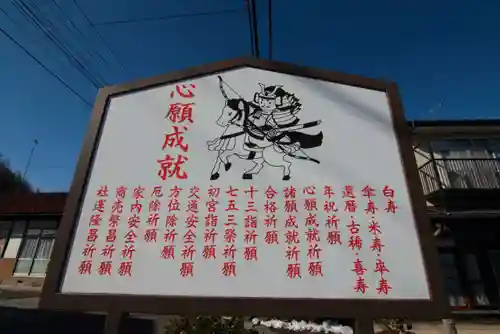 心願成就
白寿
傘寿・米寿・卆寿
還暦・古稀・喜寿
年祝祈願
心願成就祈願
諸願成就祈願
合格祈願
十三詣り祈願
七五三祭祈願
初宮詣り祈願
交通安全祈願
方位除祈願
厄除祈願
家内安全祈願
商売繁昌祈願
社運隆昌祈願